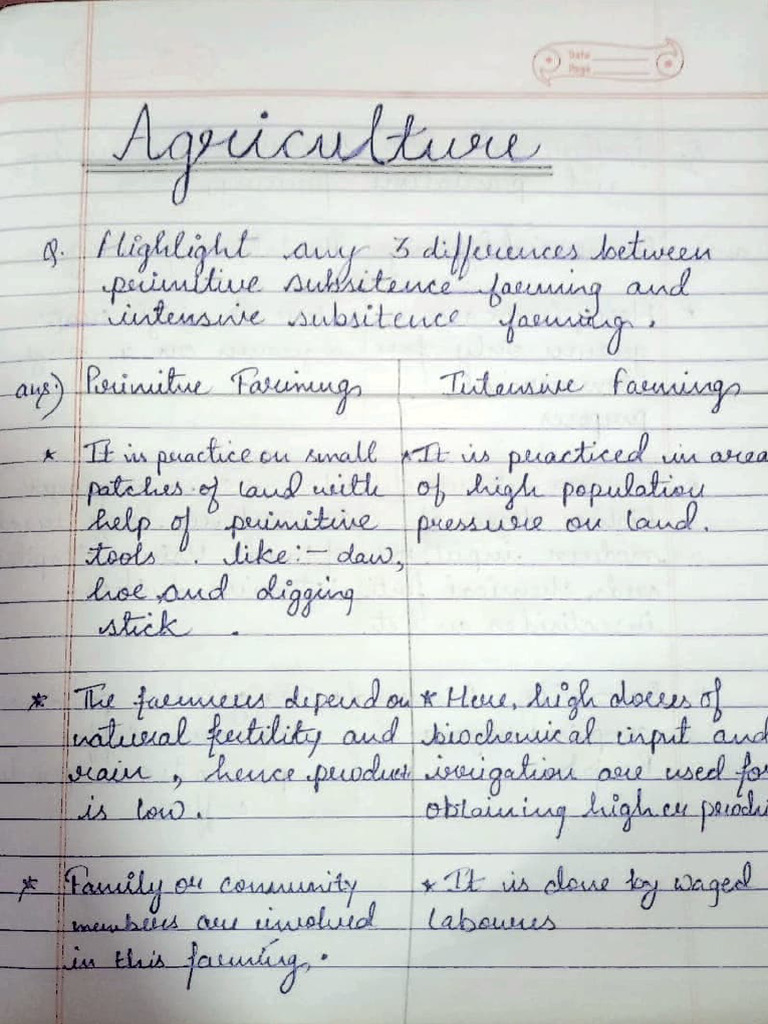 Date
Page
Agriculture
Q. Highlight any 3 differences between
primitive subsitence farming and
intensive subsitence farming.
ans:) Primitive Farming
* It is practice on small
patches of land with
help of primitive
tools. like:- daw,
hoe and digging
stick.
* The farmers depend on
natural fertility and
rain, hence product
is low.
* Family or community
members are involved
in this farming.
Intensive farming
* It is practiced in area
of high population
pressure on land.
* Here, high doses of
biochemical input and
irrigation are used for
obtaining higher
* It is done by waged
laboures